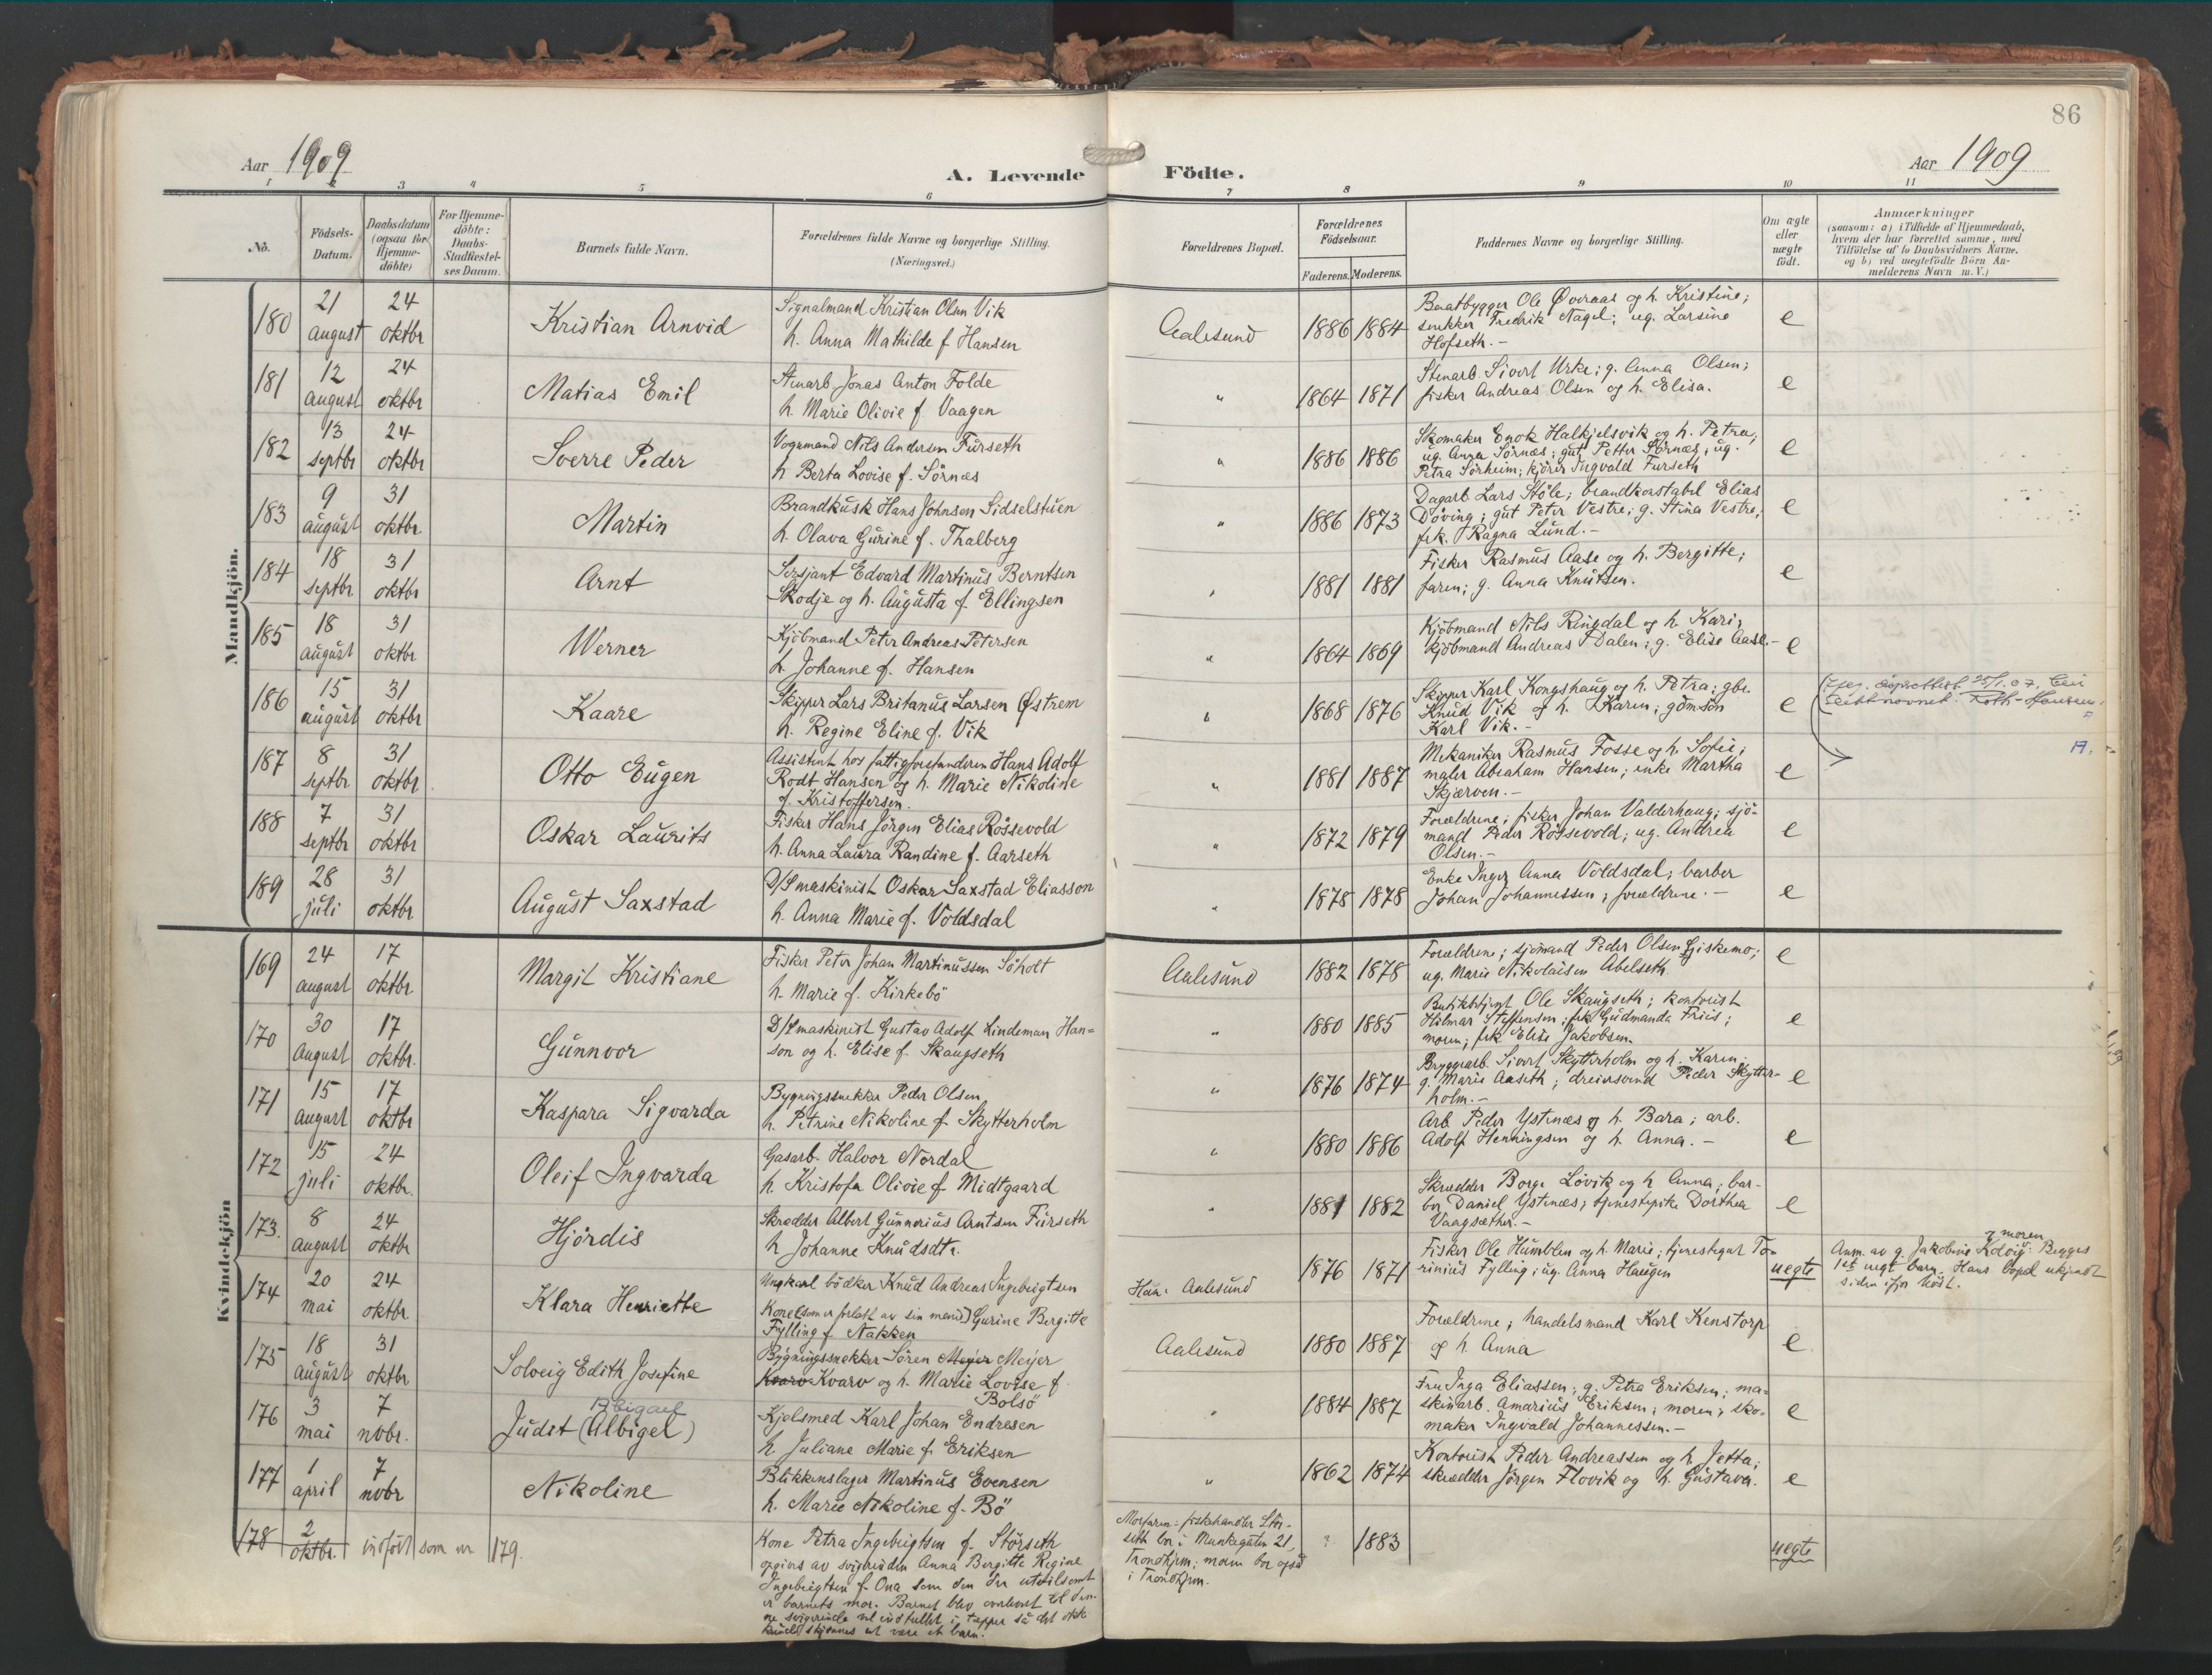 86
Aar 1909
A. Levende Födte.
Aar 1909
1 2 3 4 5 6 7 8 9 10 11
No.
Födsels-
Datum.
Daabsdatum
(ogsaa for
Hjemme-
döbte)
For Hjemme-
döbte:
Daabs-
Stadfæstel-
ses Datum.
Barnets fulde Navn.
Forældrenes fulde Navne og borgerlige Stilling.
(Næringsvei.)
Forældrenes Bopæl.
Forældrenes
Födselsaar.
Faderens. Moderens.
Faddernes Navne og borgerlige Stilling.
Om ægte
eller
uægte
födt.
Anmærkninger
(saasom: a) i Tilfælde af Hjemmedaab,
hvem der har forrettet samme, med
Tilföielse af to Daabsvidners Navne.
og b) ved uægtefödte Börn An-
melderens Navn m. V.)
Mandkjön.
180 21 august 24 oktbr Kristian Arnvid
Signalmand Kristian Olsen Vik
h. Anna Mathilde f Hansen
Aalesund 1886 1884
Baatbygger Ole Øveraas og h. Kristine;
snekker Fredrik Nagel; ug. Larsine
Hofseth. - e
181 12 august 24 oktbr Matias Emil
Stenarb. Jonas Anton Folde
h. Marie Olivie f. Vaagen
" 1864 1871
Stenarb. Sivert Urke; g. Anna Olsen;
fisker Andreas Olsen og h. Elisa. e
182 13 septbr 24 oktbr Sverre Peder
Vognmand Nils Andersen Furseth
h Berta Lovise f. Sörnæs
" 1886 1886
Skomaker Enok Halkjelsvik og h. Petra;
ug. Anna Sörnæs; gut Petter Sörnæs; ug.
Petra Sörheim; kjörer Ingvald Furseth e
183 9 august 31 oktbr Martin
Brandkusk Hans Johnsen Sidselstuen
h. Olava Gurine f. Thalberg
" 1886 1873
Dagarb Lars Stöle; brandkonstabel Elias
Döving; gut Peter Vestre; g. Stina Vestre;
frk. Ragna Lund. - e
184 18 septbr 31 oktbr Arnt
Sersjant Edvard Martinus Berntsen
Skodje og h. Augusta f. Ellingsen
" 1881 1881
Fisker Rasmus Aase og h. Bergitte;
faren; g. Anna Knutsen. e
185 18 august 31 oktbr Werner
Kjöbmand Peter Andreas Petersen
h. Johanne f. Hansen
" 1864 1869
Kjöbmand Nils Ringdal og h. Kari;
kjöbmand Andreas Dalen; g. Elise Aase. - e
186 15 august 31 oktbr Kaare
Skipper Lars Britanus Larsen Østrem
h. Regine Eline f. Vik
" 1868 1876
Skipper Karl Kongshaug og h. Petra; gbr.
Knud Vik og h. Karen; gdm.sön
Karl Vik. - e
187 8 septbr 31 oktbr Otto Eugen
Assistent hos fattigforstanderen Hans Adolf
Rodt Hansen og h. Marie Nikoline
f. Kristoffersen.
" 1881 1887
Mekaniker Rasmus Fosse og h. Sofie;
maler Abraham Hansen; enke Martha
Skjærven. - e
188 7 septbr 31 oktbr Oskar Laurits
Fisker Hans Jörgen Elias Rössevold
h. Anna Laura Randine f. Aarseth
" 1872 1879
Forældrene; fisker Johan Valderhaug; sjö-
mand Peder Rössevold; ug. Andrea
Olsen. - e
189 28 juli 31 oktbr August Saxstad
D/S maskinist Oskar Saxstad Eliasson
h. Anna Marie f. Voldsdal
" 1878 1878
Enke Inger Anna Voldsdal; barber
Johan Johannessen; forældrene. - e
Kvindekjön
169 24 august 17 oktbr. Margit Kristiane
Fisker Peter Johan Martinussen Söholt
h. Marie f. Kirkebö
Aalesund 1882 1878
Forældrene; sjömand Peder Olsen Giskemo;
ug. Marie Nikolaisen Abelseth. e
170 30 August 17 oktbr. Gunnvor
D/S maskinist Gustav Adolf Lindeman Han=
son og h. Elise f. Skaugseth
" 1880 1885
Butikbetjent Ole Skaugseth; kontorist
Hilmar Steffensen; frk Gudmanda Friis;
moren; frk Elise Jakobsen. e
171 15 August 17 oktbr Kaspara Sigvarda
Bygningssnekker Peder Olsen
h. Petrine Nikoline f. Skytterholm
" 1876 1874
Bryggearb. Sivert Skytterholm og h. Karen;
g. Marie Aaseth; dreiersvend Peder Skytter-
holm. - e
172 15 juli 24 oktbr. Oleif Ingvarda
Gasarb. Halvor Nordal
h. Kristofa Olivie f. Midtgaard
" 1880 1886
Arb. Peder Ystenæs og h. Bara; arb.
Adolf Henningsen og h. Anna. - e
173. 8 August 24 oktbr Hjördis
Skrædder Albert Gunnerius Arntsen Furseth
h Johanne Knudsdtr.
" 1881 1882
Skrædder Borge Lövik og h Anna; bar-
ber Daniel Ystenæs; tjenestepike Dorthea
Vaagsæther. - e
174 20 mai 24 oktbr Klara Henriette
Ungkarl bödker Knud Andreas Ingebrigtsen
Kone (som er forlatt av sin mand) Gurine Bergitte
Fylling f. Nakken
Han: Aalesund 1876 1871
Fisker Ole Humblen og h. Marie; tjenestegut To-
rinius Fylling; ug. Anna Haugen uegte
og moren
Anm. av g. Jakobine Kolvig: Begges
1st uegt barn. Hans bopel ukjendt
siden ifjor höst.
175 18 august 31 oktbr Solveig Edith Josefine
Bygningssnekker Sören Meyer Meijer
Kvarv Kvarv og h. Marie Lovise f.
Bolsö
Aalesund 1880 1887
Forældrene; handelsmand Karl Kenstorp
og h. Anna e
176 3 mai 7 nobr. Judit (Albigel)
Abigael
Kjelsmed Karl Johan Endresen
h Juliane Marie f. Eriksen
" 1884 1887
Fru Inga Eliassen; g. Petra Eriksen; ma-
skinarb. Amarius Eriksen; moren; sko-
maker Ingvald Johannessen. - e
177 1 april 7 nobr Nikoline
Blikkenslager Martinus Evensen
h. Marie Nikoline f. Bö
" 1862 1874
Kontorist Peder Andreassen og h Jetta;
skrædder Jörgen Flovik og h. Gustava. e
178 2 oktbr. indfört som nr 179.
Kone Petra Ingebrigtsen f. Störseth
opgives av svigerinden Anna Bergitte Regine
Ingebrigtsen f. Ona som den der utvilsomt
er barnets mor. Barnet blev overlevert til den-
ne svigerinde vel indhyllet i tæpper så det ikke
kunde skjönnes at være et barn.
Morfaren: fiskehandler Stör-
seth bor i Munkegaten 21,
Trondhjem; moren bor også
i Trondhjem.
? 1883 uegte